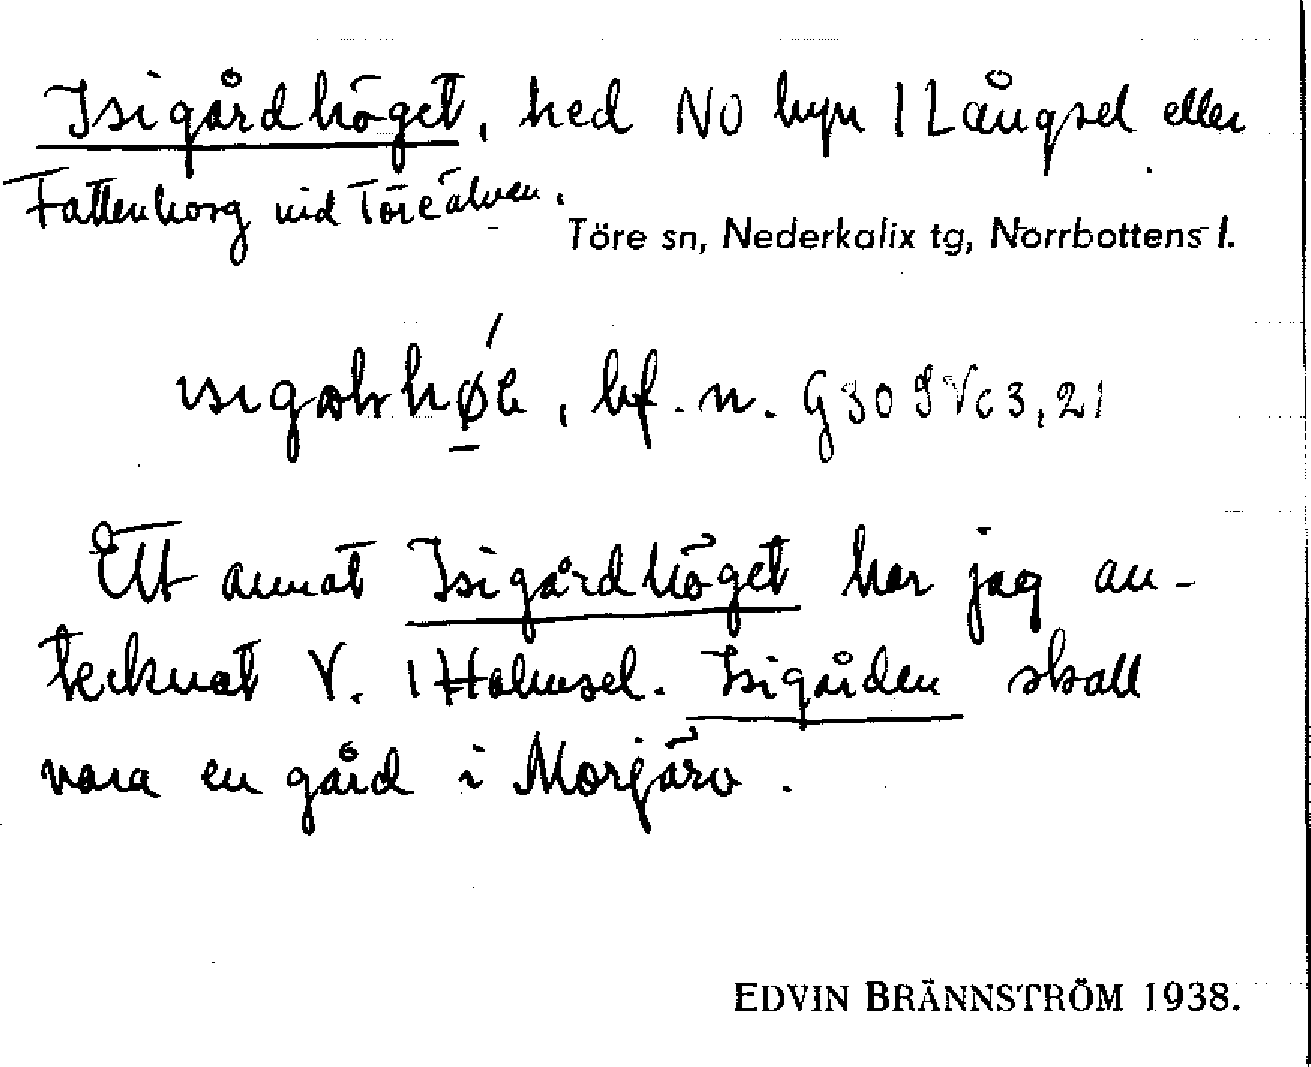 Isigårdhöget, hed NO byn 1 Långsel eller
Fattenborg vid Töreälven.
Töre sn, Nederkalix tg, Norrbottens l.
bf. n. G30 9Vc3,21
Ett annat Isigårdhöget har jag an-
tecknat V. 1 Holmsel. Isigården skall
vara en gård i Morjärv.
EDVIN BRÄNNSTRÖM 1938.